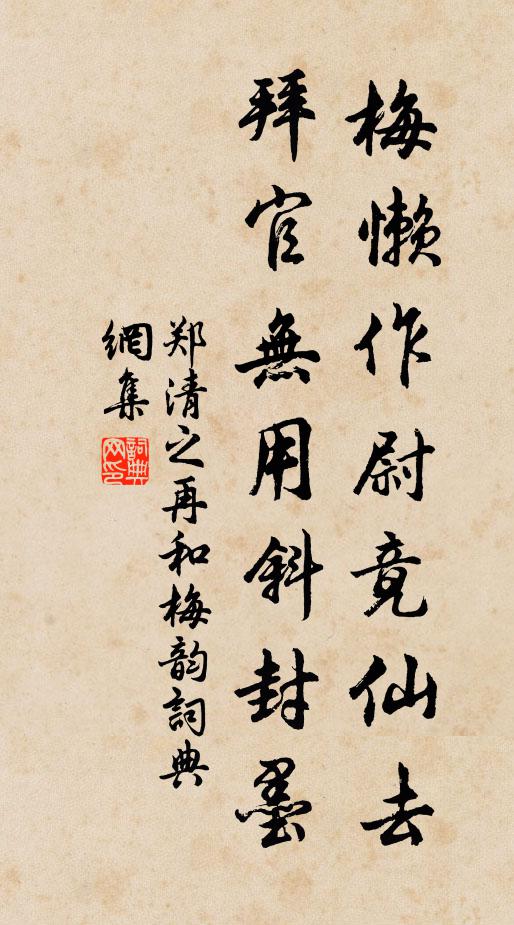 梅懒作尉竟仙去
拜官無用斜封墨
郑清之再和梅韵詞典
網集
詞典網印